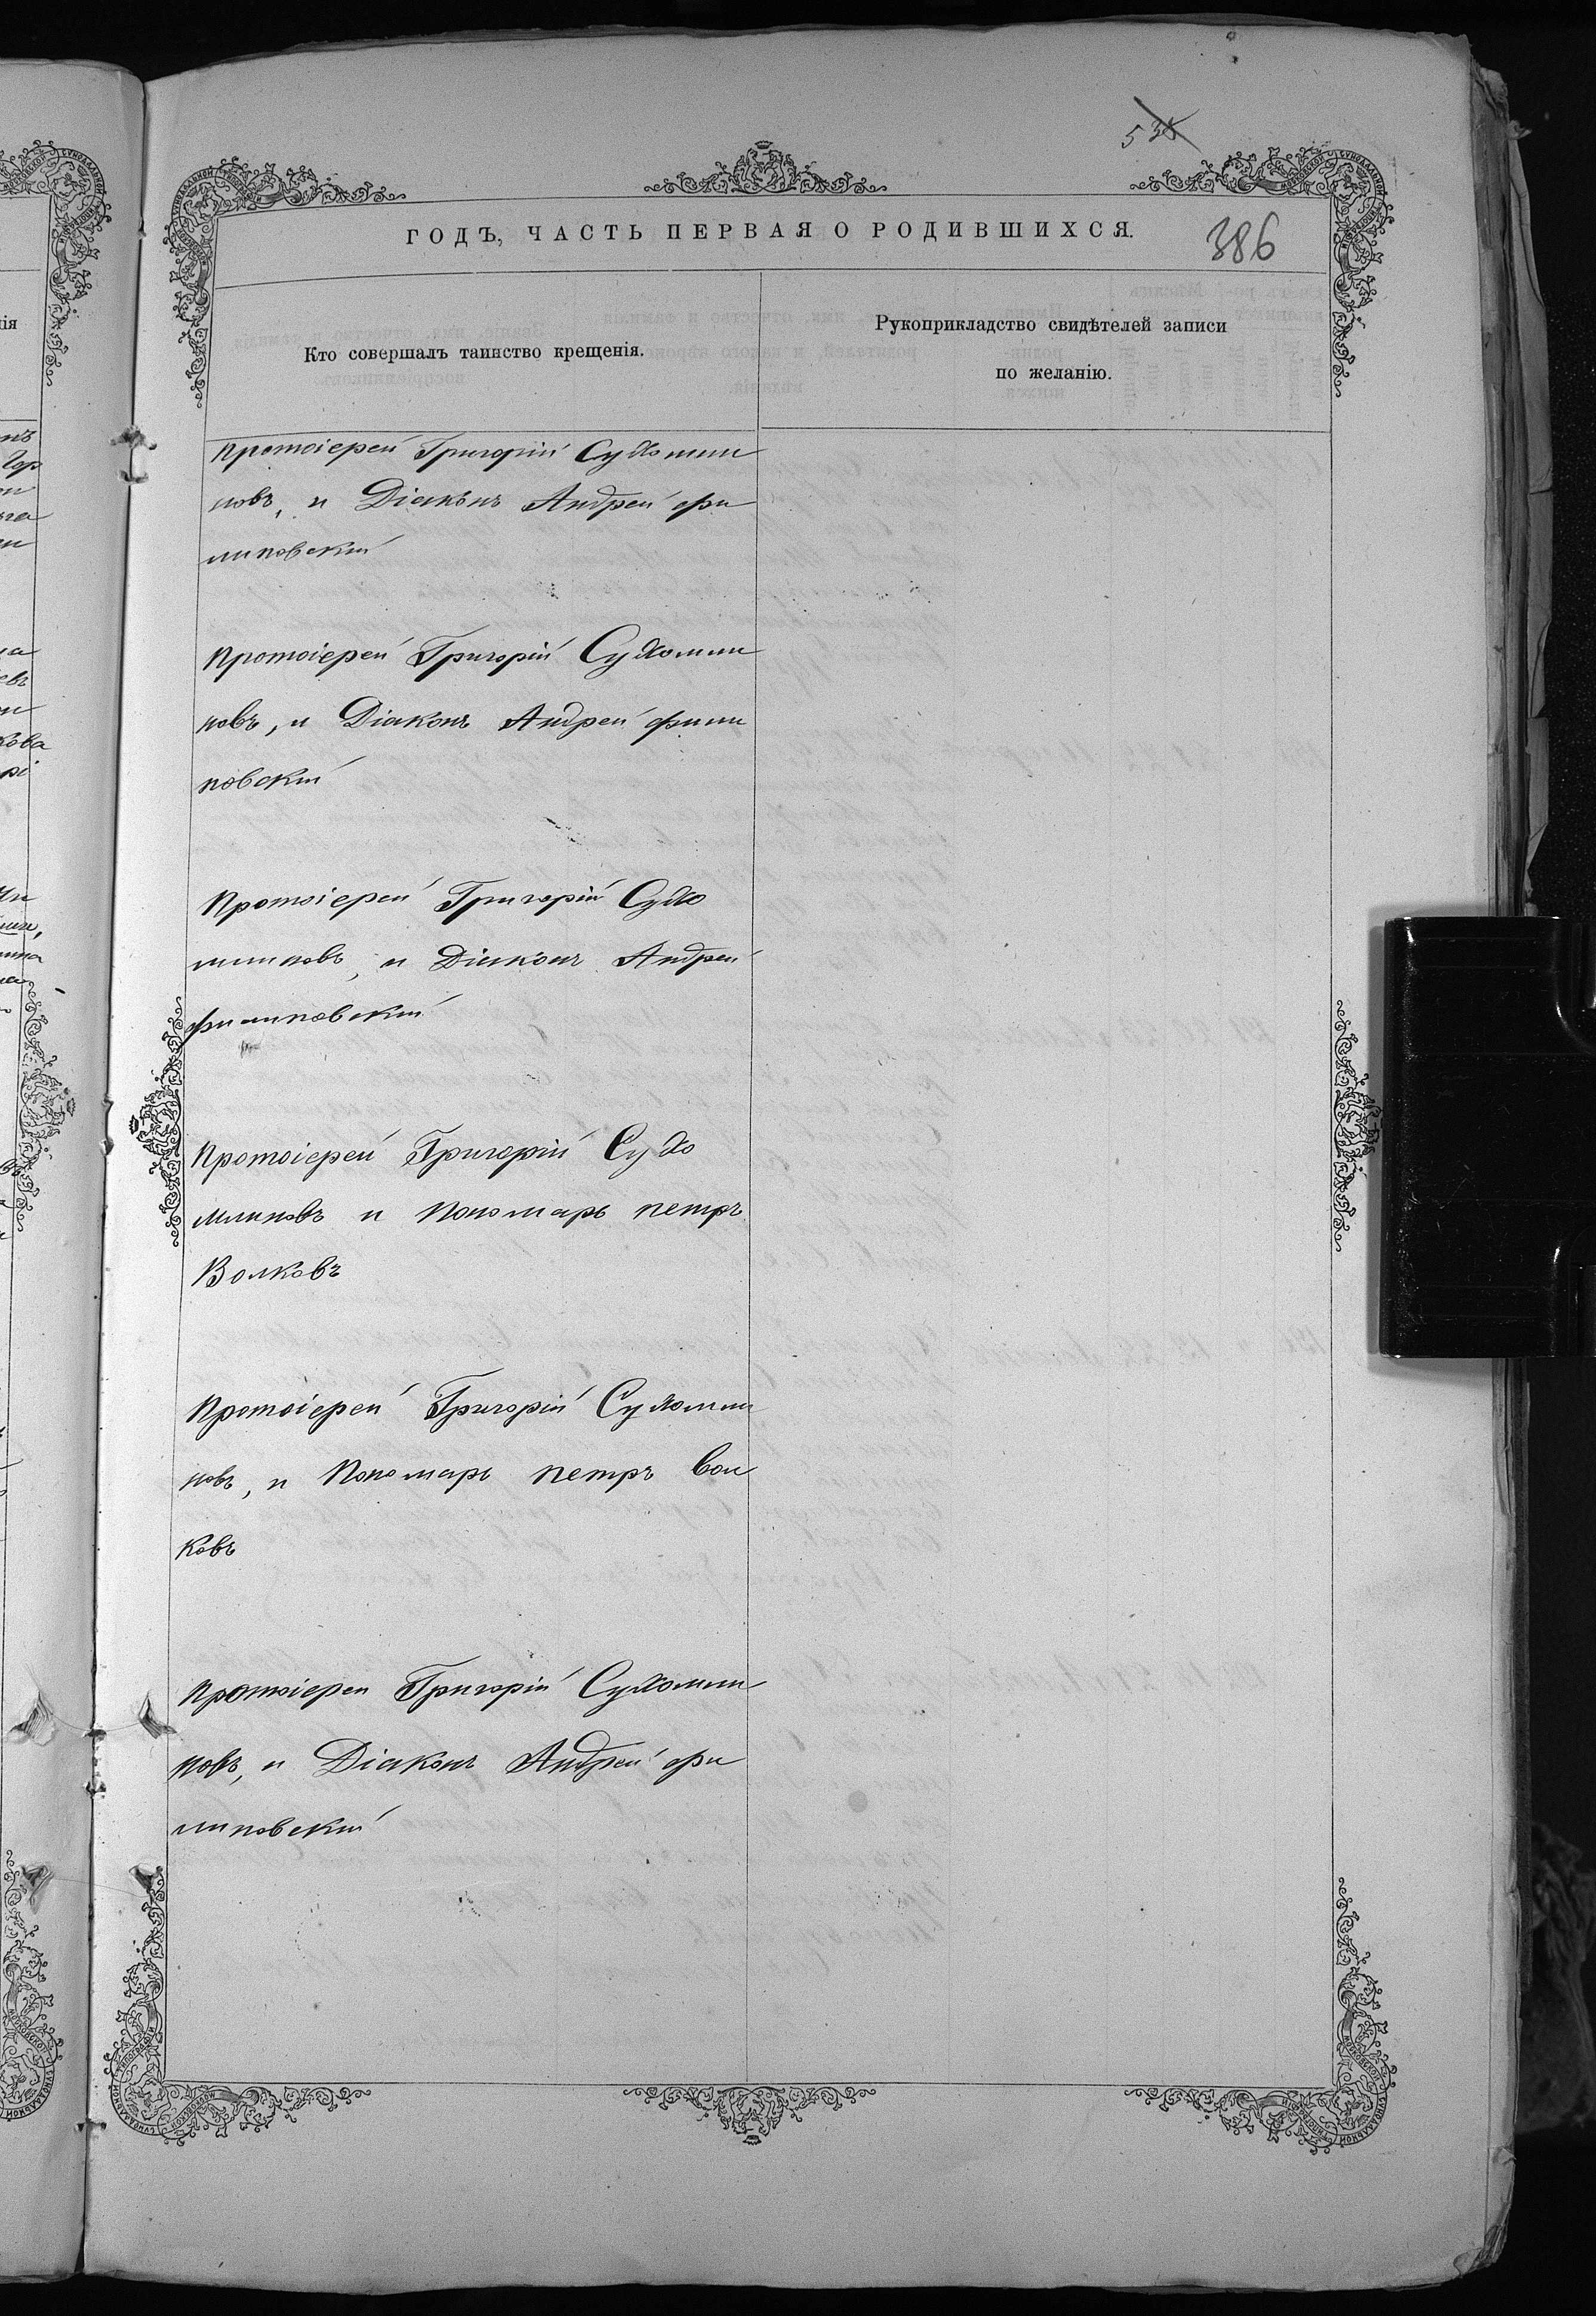 538
ГОДЪ, ЧАСТЬ ПЕРВАЯ О РОДИВШИХСЯ.
386
Кто совершалъ таинство крещенія.
Рукоприкладство свидѣтелей записи
по желанію.
протоіерей Григорій Сухомли
новъ, и Діаконъ Андрей фи
липовскій
протоіерей Григорій Сухомли
новъ, и Діаконъ Андрей фили
повскій
протоіерей Григорій Сухо
млиновъ, и Діаконъ Андрей
филиповскій
протоіерей Григорій Сухо
млиновъ и пономарь петръ
Волковъ
протоіерей Григорій Сухомли
новъ, и пономарь петръ вол
ковъ
протоіерей Григорій Сухомли
новъ, и Діаконъ Андрей фи
липовскій